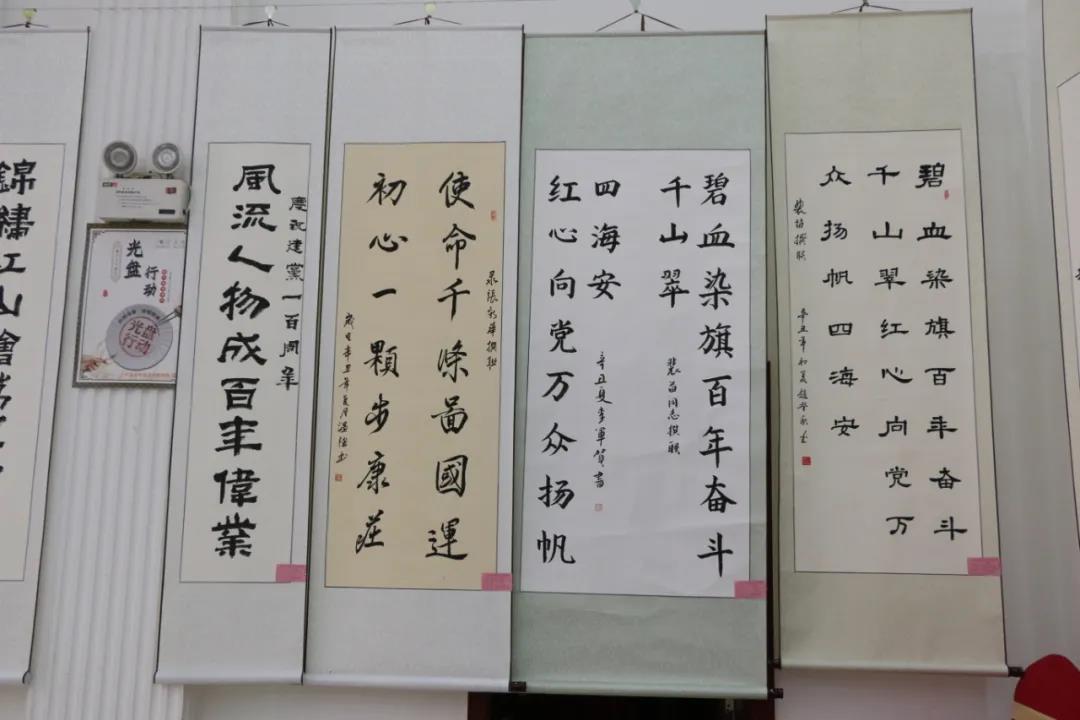 碧血染旗百年奋斗
千山翠红心向党万
众扬帆四海安
碧血染旗百年奋斗
千山翠
同志撰联
红心向党万众扬帆
四海安
辛丑夏李军贺书
使命千條啚國運
初心一顆步康莊
慶祝建黨一百周年
風流人物成百年偉業
光盘
行动
光盘
行动
錦繡江山會